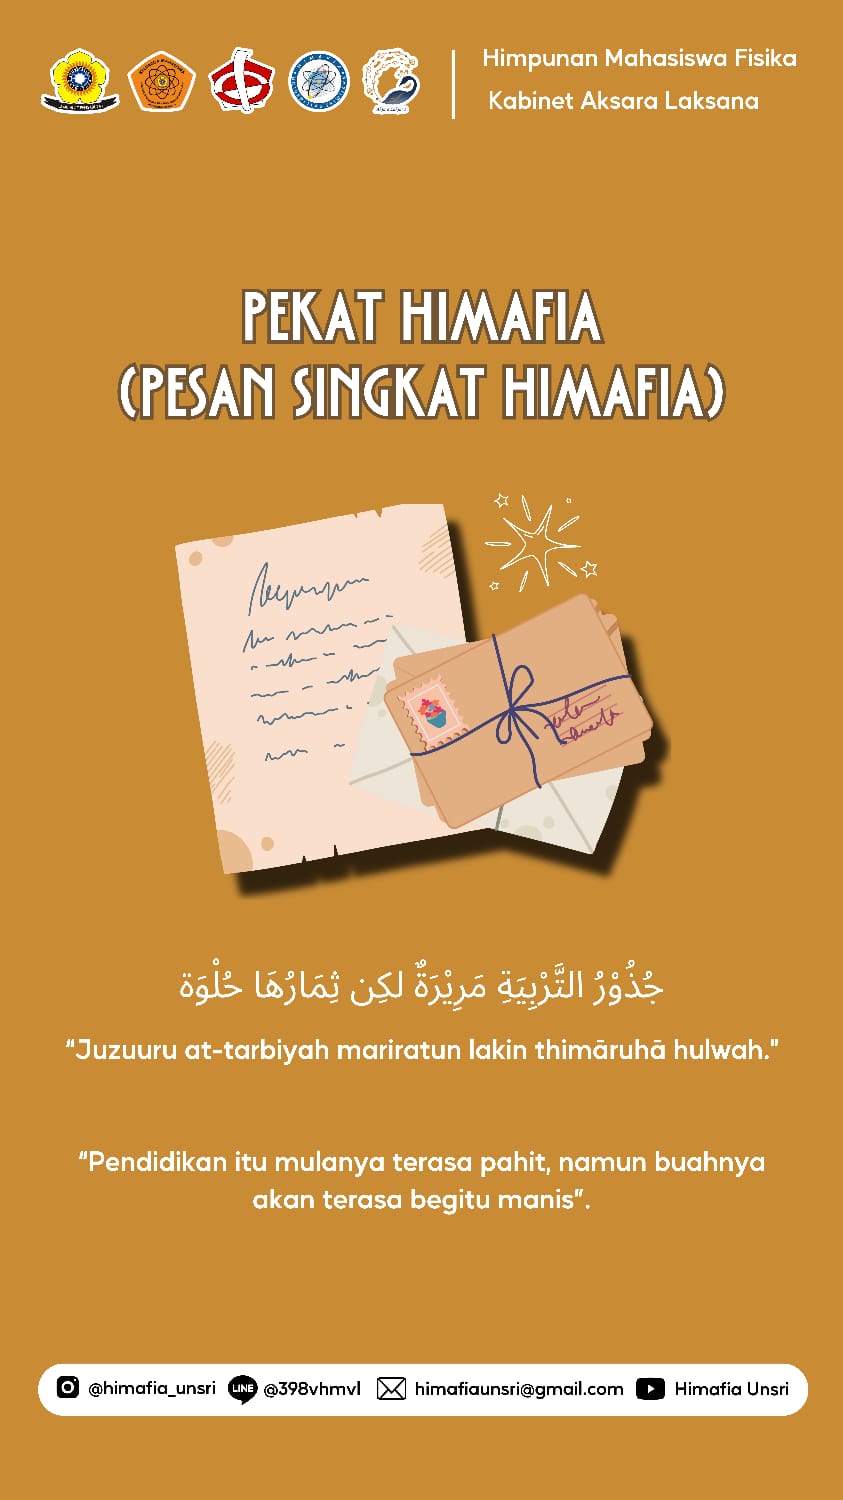 Himpunan Mahasiswa Fisika
Kabinet Aksara Laksana
PEKAT HIMAFIA
(PESAN SINGKAT HIMAFIA)
جُذُوْرُ التَّرْبِيَةِ مَرِيْرَةٌ لكِن ثِمَارُهَا حُلْوَة
“Juzuuru at-tarbiyah mariratun lakin thimāruhā hulwah."
“Pendidikan itu mulanya terasa pahit, namun buahnya
akan terasa begitu manis”.
@himafia_unsri LINE @398vhmvl himafiaunsri@gmail.com Himafia Unsri